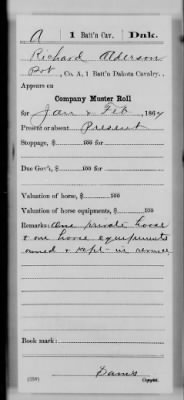 A | 1 Batt'n Cav. | Dak.
Richard Alderson
Pvt, Co. A, 1 Batt'n Dakota Cavalry.
Appears on
Company Muster Roll
for Jan & Feb, 1864
Present or absent Present
Stoppage, $ 100 for
Due Gov't, $ 100 for
Valuation of horse, $ 100
Valuation of horse equipments, $ 100
Remarks: One private horse
& one horse equipments
owned & kept in service
Book mark:
(359)
Copyist.